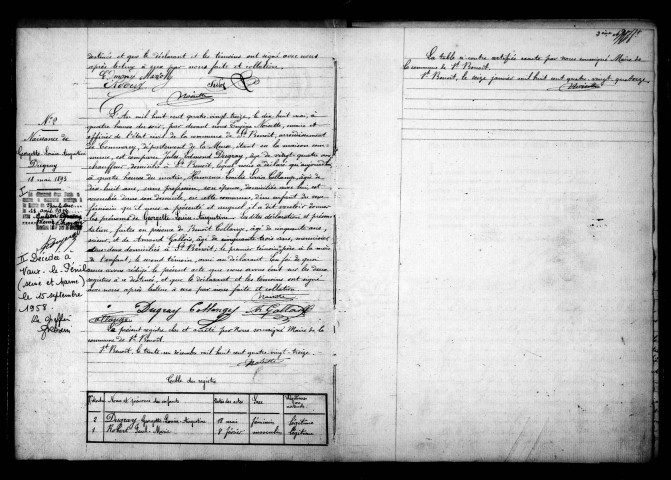 destinés et que le déclarant et les témoins ont signé avec nous
après lecture à eux par nous faite et collation.
Noisette
N° 2
Naissance de
Georgette Louise Augustine
Dugray
18 mai 1893
L'An mil huit cent quatre vingt treize, le dix huit mai, à
quatre heures du soir, par devant nous Eugène Noisette, maire et
officier de l'état civil de la commune de St Benoît, arrondissement
de Commercy, département de la Meuse, étant en la maison com-
mune, est comparu Jules Edmond Dugray, âgé de vingt quatre ans
chauffeur, domicilié à St Benoît, lequel nous a déclaré qu'aujourd'hui
à quatre heures du matin Hermance Emilie Louise Collange, âgée de
dix huit ans, sans profession, son épouse, domiciliée avec lui, est
accouchée dans son domicile, en cette commune, d'un enfant du sexe
féminin qu'il nous a présenté et auquel il a dit vouloir donner
les prénoms de Georgette Louise Augustine. Lesdites déclaration et présen-
tation, faites en présence de Collange, âgé de cinquante ans,
et de Armand Gallois, âgé de cinquante trois ans, menuisier
tous deux domiciliés à St Benoît, le premier témoin père à la mère
de l'enfant, le second témoin, ami au déclarant. En foi de quoi
nous avons rédigé le présent acte que nous avons écrit sur les deux
registres à ce destinés, et que le déclarant et les témoins ont signé
avec nous après lecture à eux par nous faite et collation
Noisette
Dugray Collange A. Gallois
II Décédée à
Vaux-le-Pénil
(Seine et Marne)
le 15 septembre
1958.
Le Greffier
Le présent registre clos et arrêté par nous soussigné Maire de la
commune de St Benoît.
St Benoît, le trente un décembre mil huit cent quatre-vingt-treize.
Noisette
Table du registre
Noms et prénoms des enfants
Dates des actes
Sexe
2 Dugray Georgette Louise Augustine 18 mai féminin légitime
1 Robert Paul Marie 8 février masculin légitime
La table ci-contre certifiée exacte par nous soussigné Maire de
la commune de St Benoît.
St Benoît, le seize janvier mil huit cent quatre-vingt quatorze.
Noisette